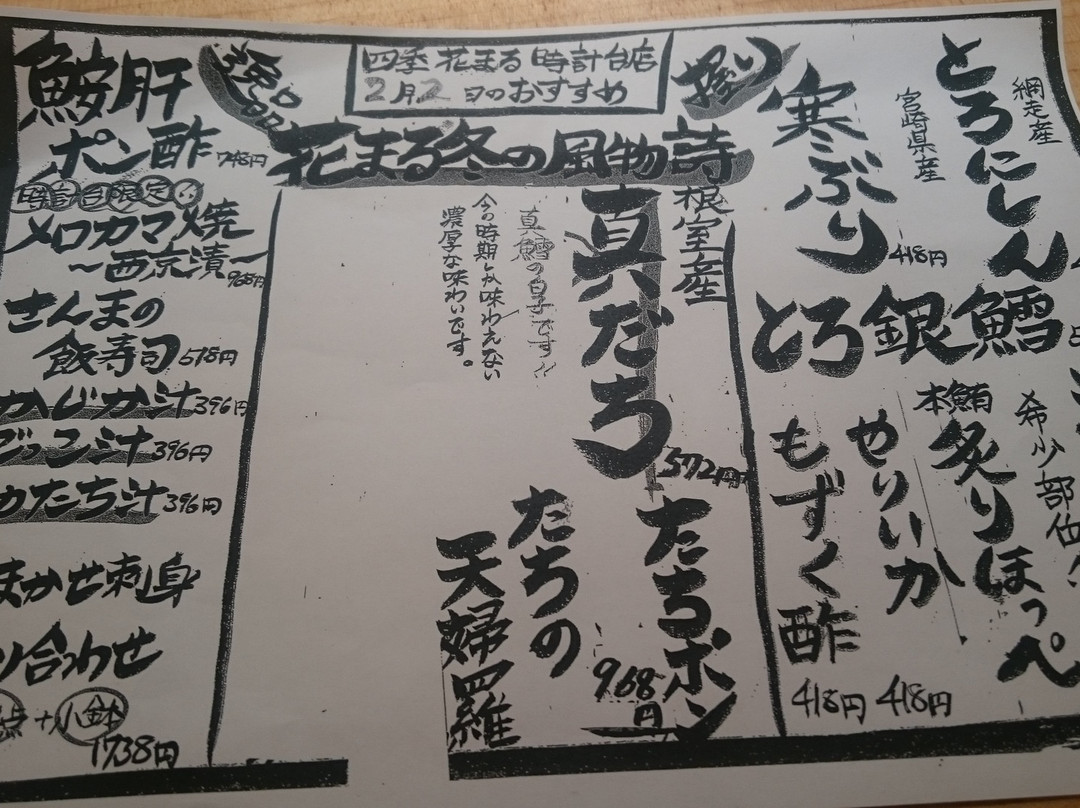 四季 花まる 時計台店
2月2日のおすすめ
握り
網走産
とろにしん
宮崎県産
寒ぶり
418円
とろ銀鱈
希少部位!
本鮪
炙りほっぺ
やりいか
418円
もずく酢
418円
花まる冬の風物詩
根室産
真だち
572円
真鱈の白子です!!
今の時期しか味わえない
濃厚な味わいです。
たちポン
968円
たちの
天婦羅
逸品
鮟肝
ポン酢 748円
時計台限定!!
メロカマ焼
〜西京漬〜 968円
さんまの
飯寿司 518円
かじか汁 396円
ごっこ汁 396円
たち汁 396円
まかせ刺身
合わせ
+小鉢
1738円